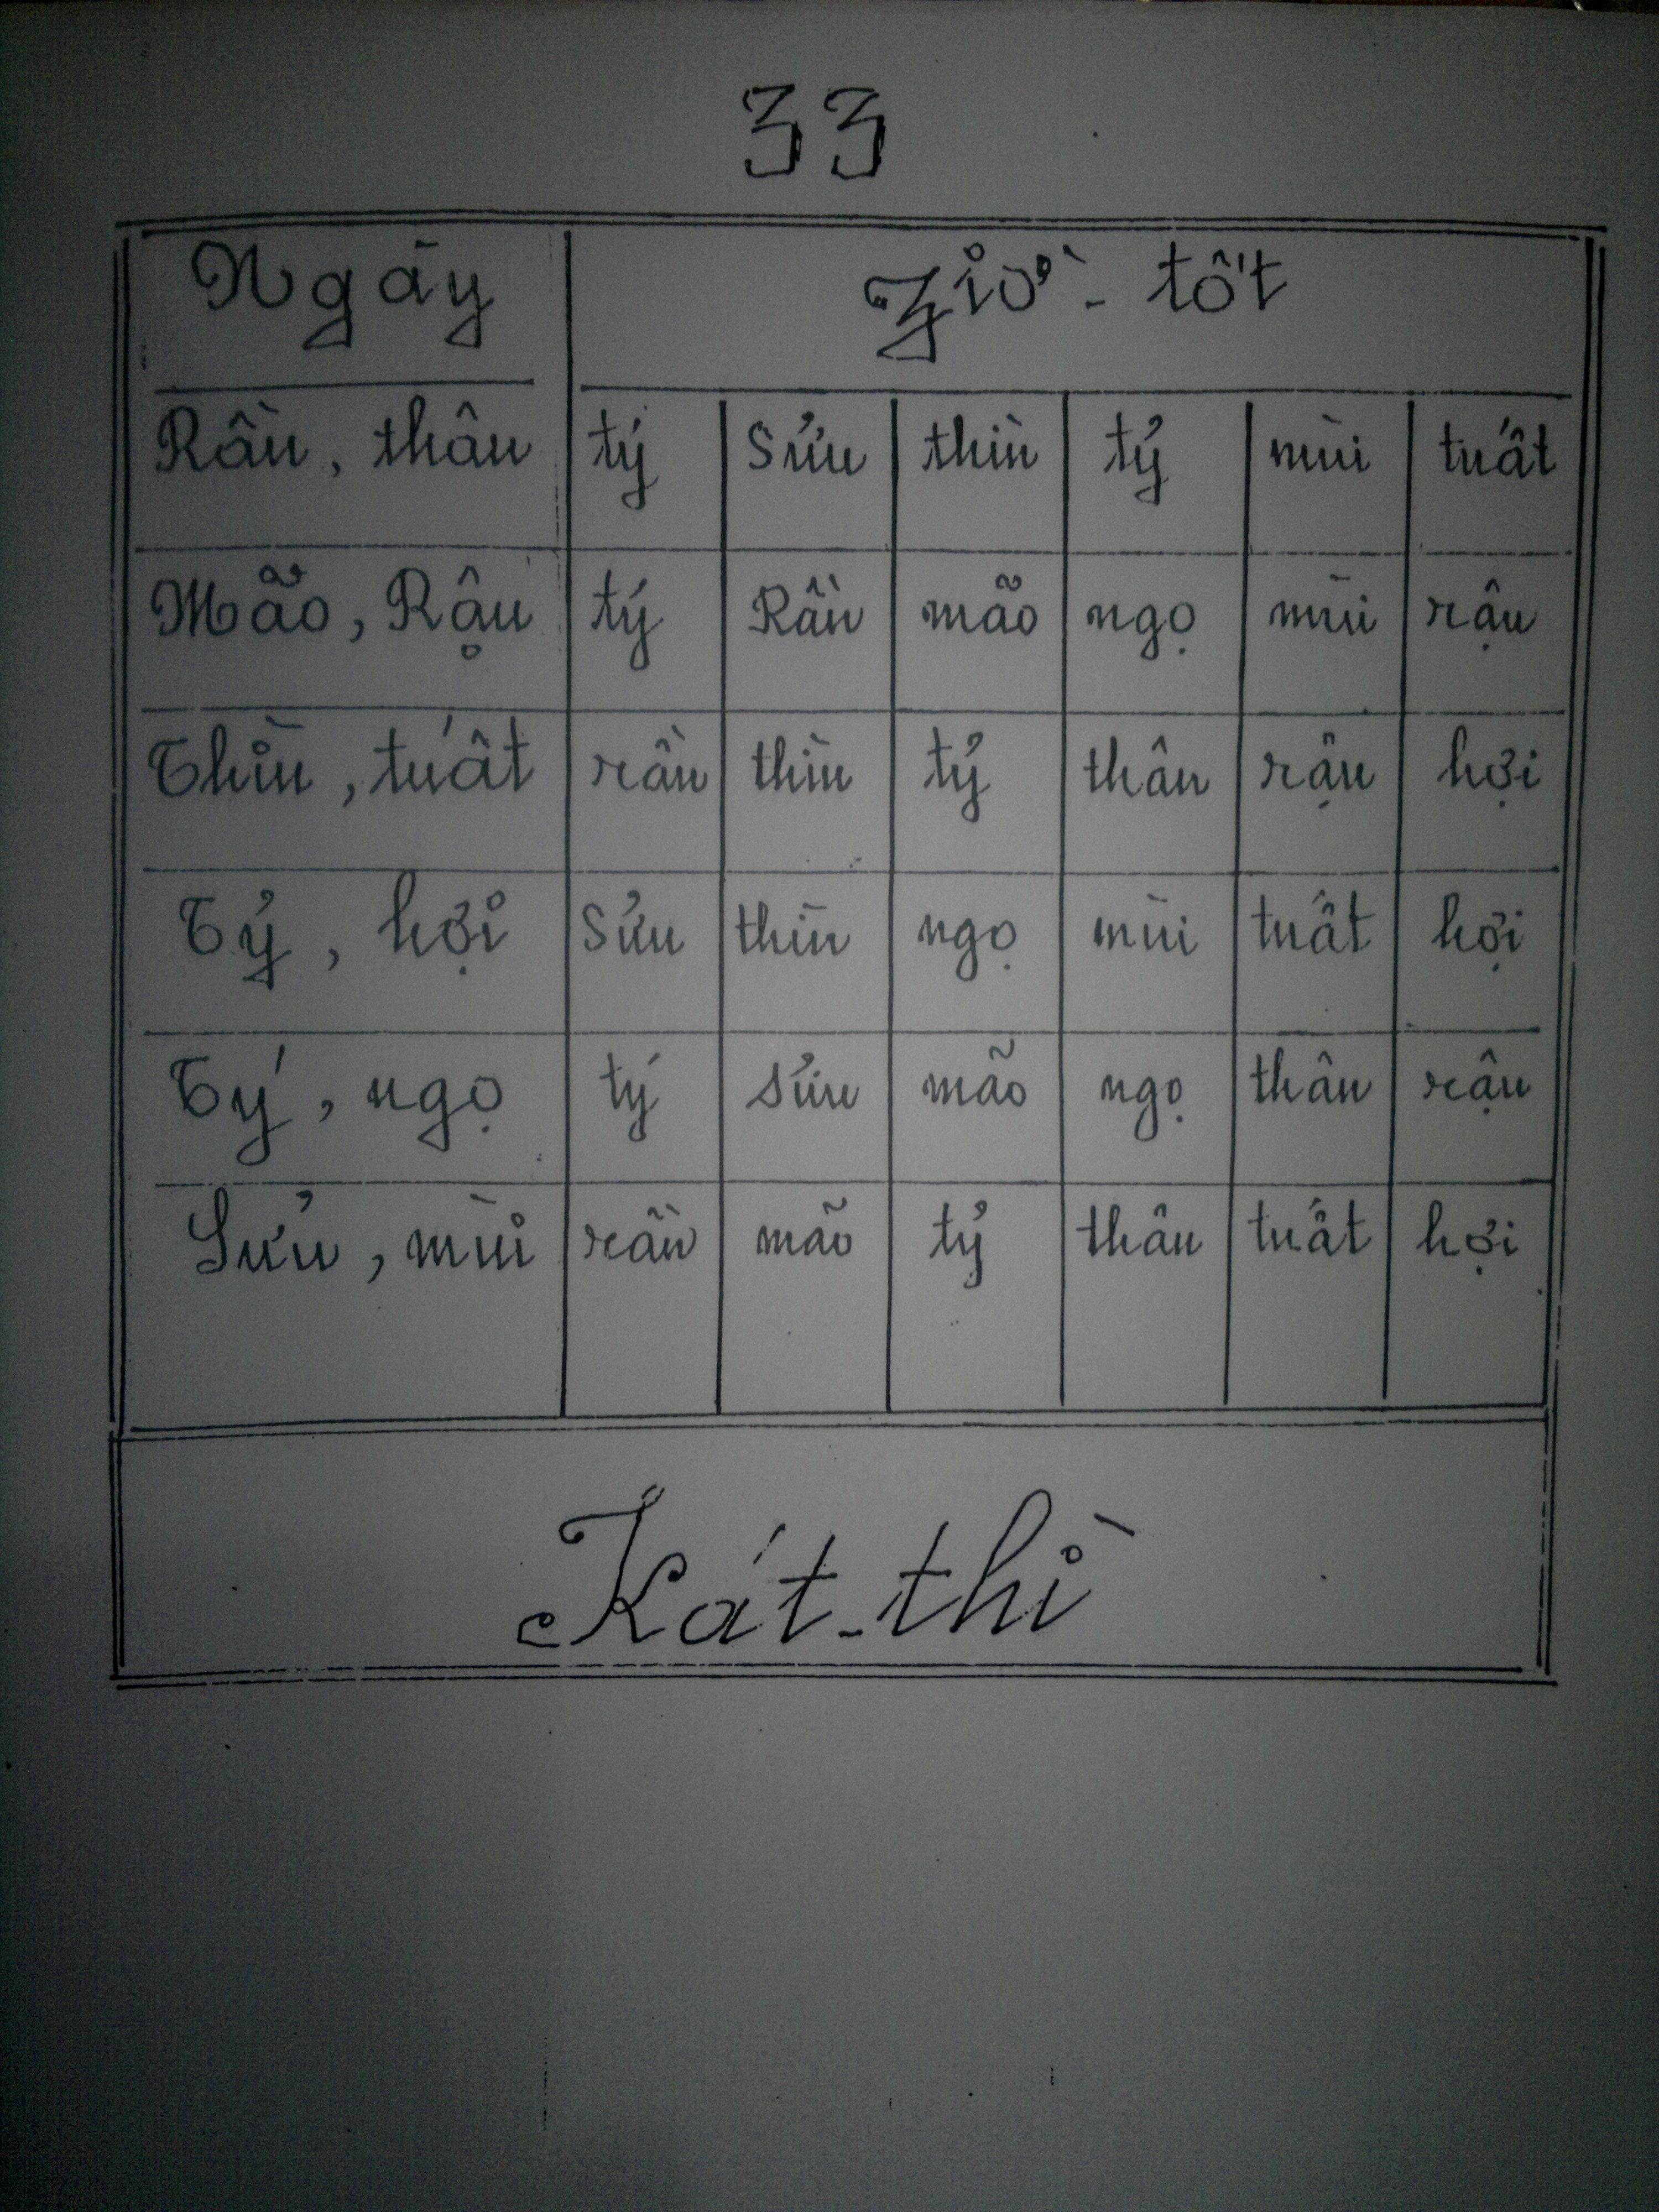 33
Ngày Ziờ - tốt
Rần, thân tý Sửu thìn tỷ mùi tuất
Mão, Rậu tý Rần mão ngọ mùi rậu
Thìn, tuất rần thìn tỷ thân rậu hợi
Tỷ, hợi Sửu thìn ngọ mùi tuất hợi
Tý, ngọ tý sửu mão ngọ thân rậu
Sửu, mùi rần mão tỷ thân tuất hợi
Kát-thì